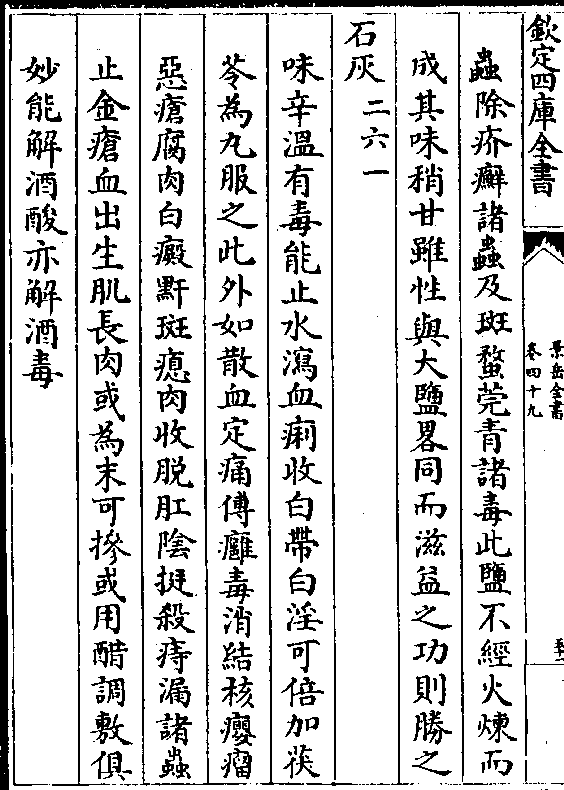 欽定四庫全書
景岳全書
卷四十九
蟲除疥癬諸蟲及斑蝥莞青諸毒此鹽不經火煉而
成其味稍甘雖性與大鹽畧同而滋益之功則勝之
石灰二六一
味辛溫有毒能止水瀉血痢收白帶白淫可倍加茯
苓為丸服之此外如散血定痛傅癰毒消結核癭瘤
惡瘡腐肉白癜黚斑瘜肉收脱肛陰挺殺痔漏諸蟲
止金瘡血出生肌長肉或為末可摻或用醋調敷俱
妙能解酒酸亦解酒毒